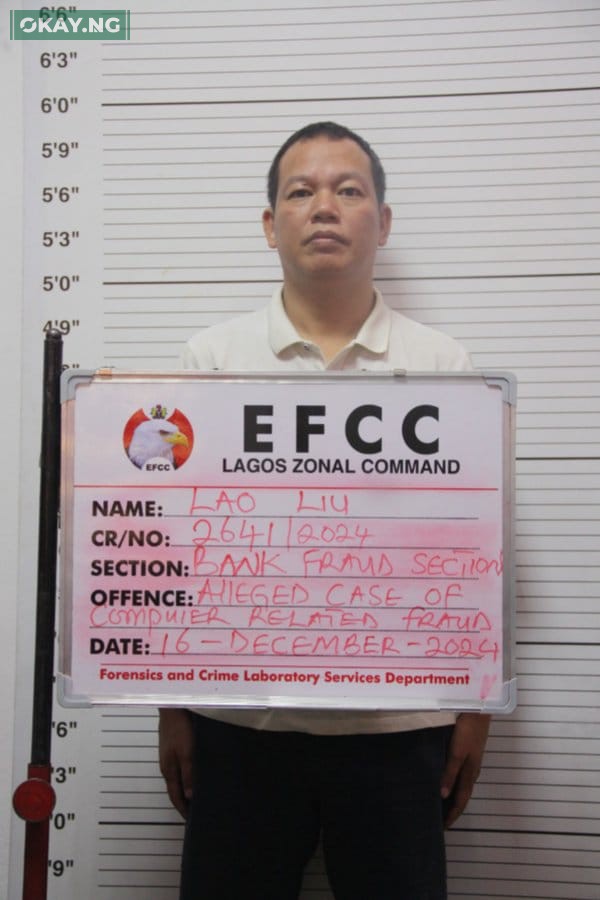 OKAY.NG
6'6"
6'3"
6'0"
5'9"
5'6"
5'3"
5'0"
4'9"
EFCC
EFCC
LAGOS ZONAL COMMAND
NAME: LAO LIU
CR/NO: 2641/2024
SECTION: BANK FRAUD SECTION
OFFENCE: Alleged CASE OF
COMPUTER RELATED FRAUD
DATE: 16-DECEMBER-2024
Forensics and Crime Laboratory Services Department
'6"
'3"
'0"
'9"